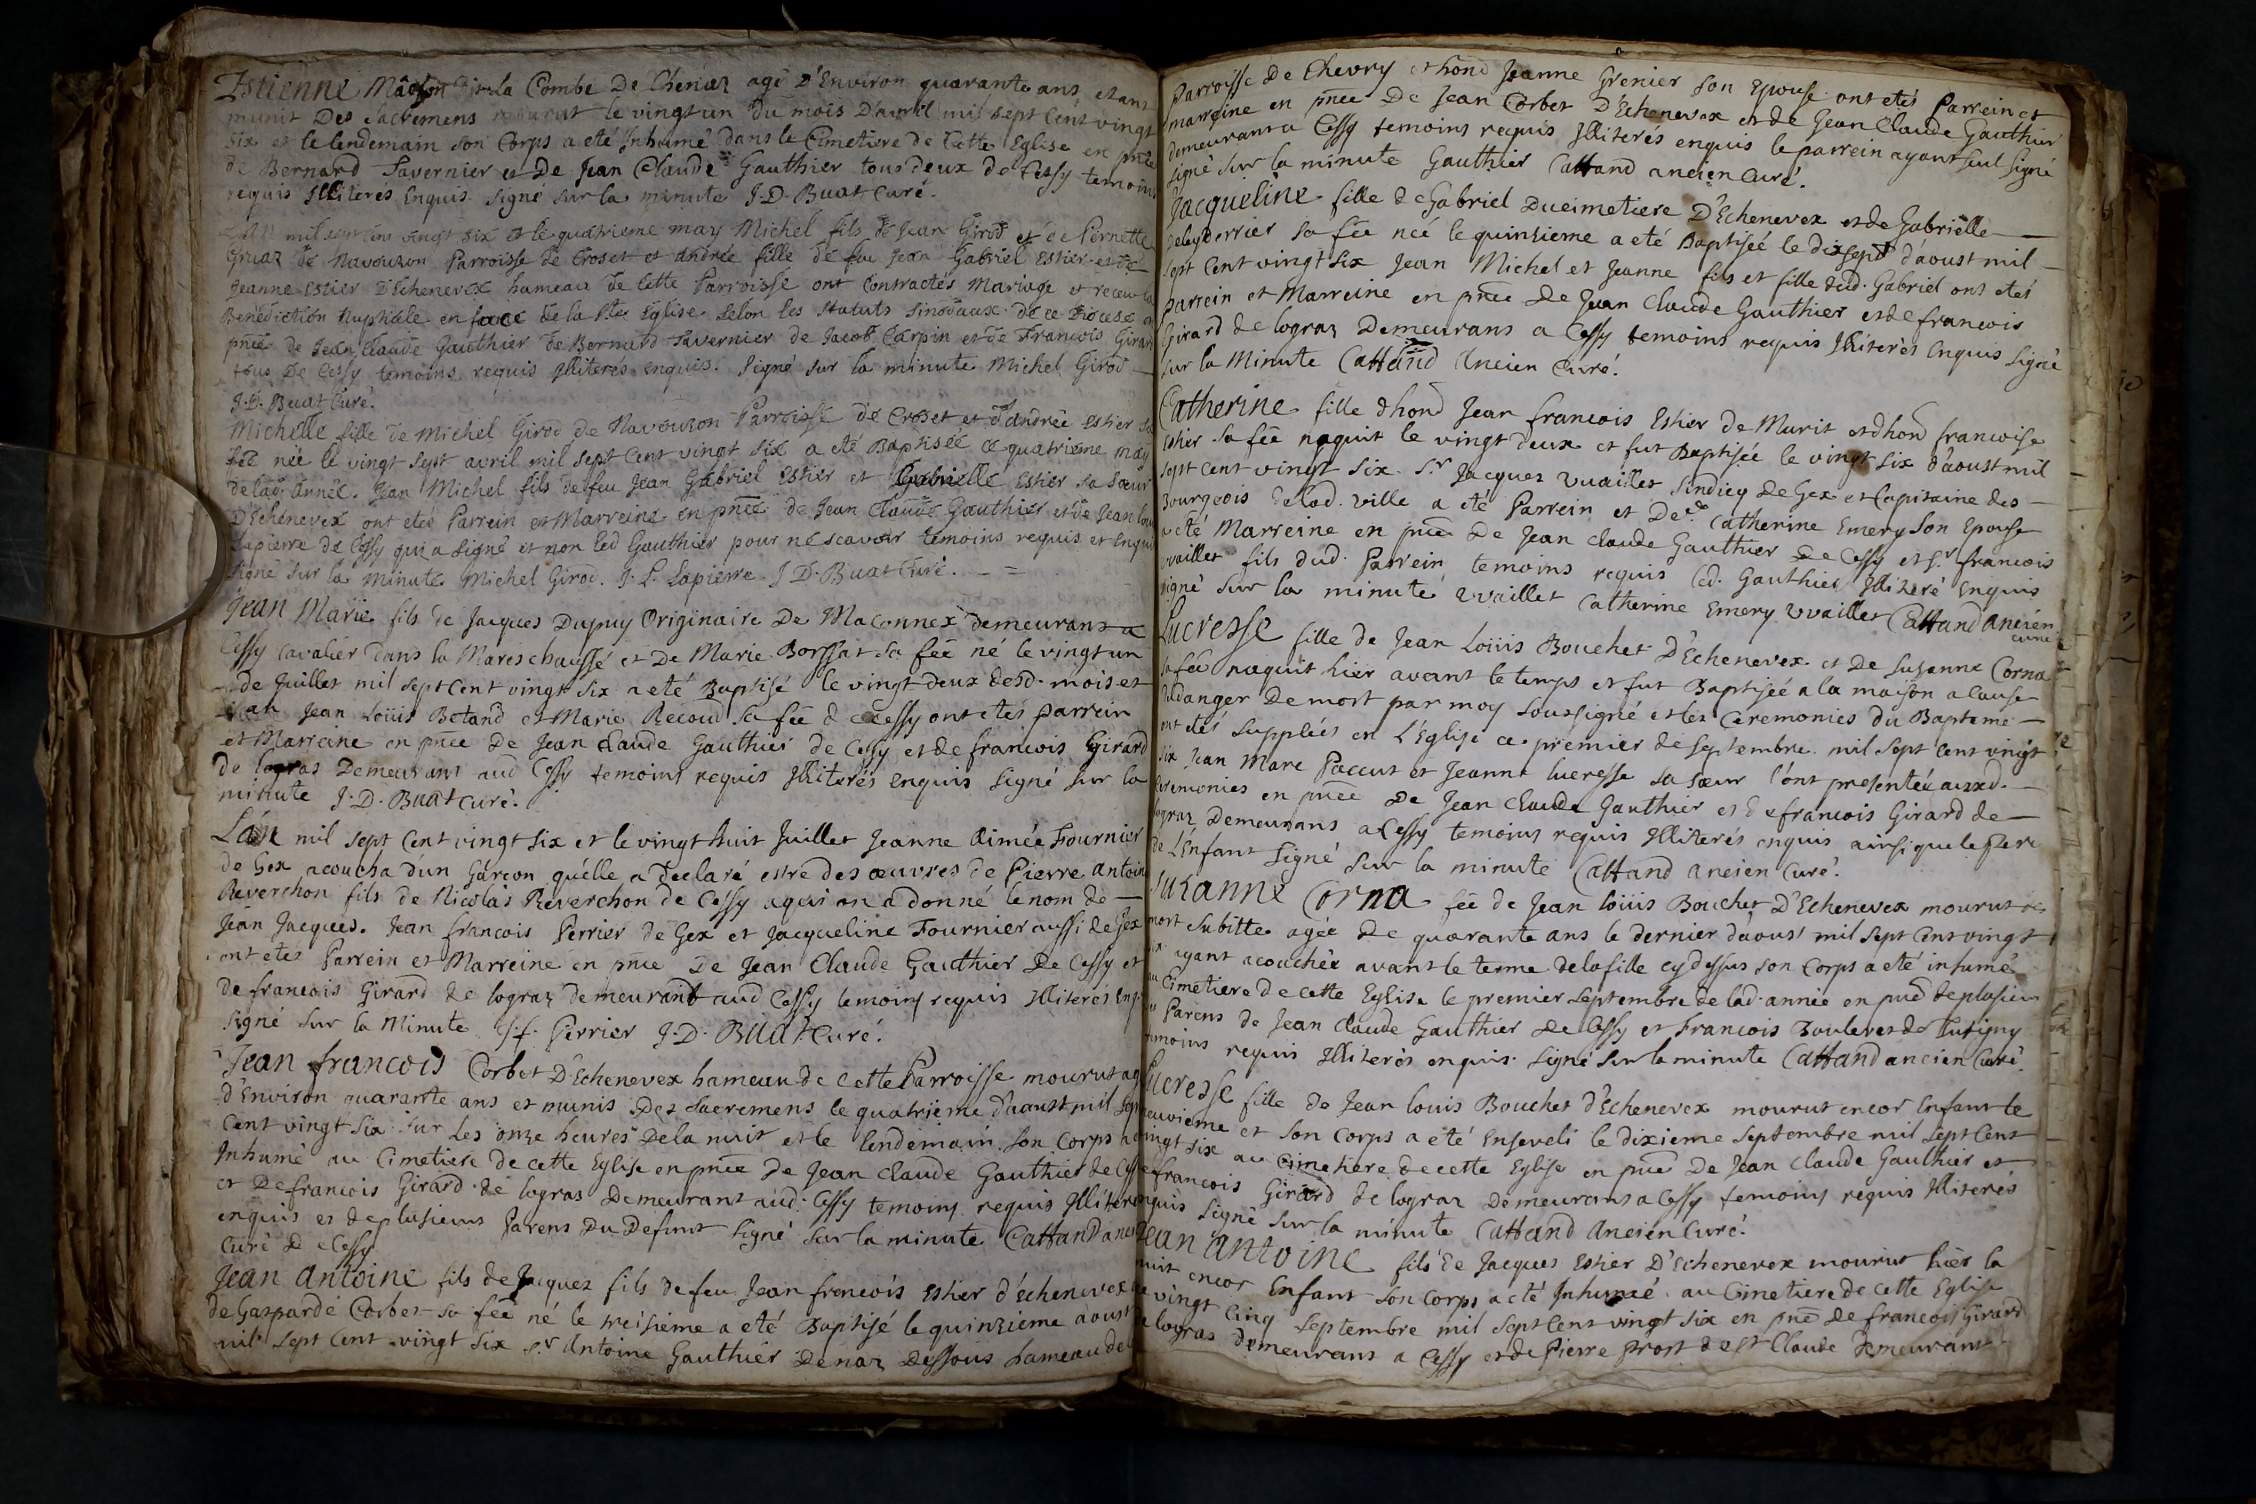 Estienne de la Combe De Chenaz agé D'Environ quarante ans estant
munit Des Sacremens mourut le vingt un du mois D'avril mil sept Cent vingt
six et le lendemain son Corps a eté Inhumé dans le Cimetiere de Cette Eglise en pñce
de Bernard Tavernier et De Jean Claude Gauthier tous deux de Cessy temoins
requis Illiteres Enquis. Signé sur la minute J. D. Buat Curé.
L'an mil sept Cens vingt six et le quatrieme may Michel fils de Jean Girod et de Pernette
Gruaz de Navouzon Parroisse de Croset et Andrée fille de feu Jean Gabriel Estier et de
Jeanne Estier D'Echenevex hameau de Cette Parroisse ont Contractés Mariage et receu la
Benediction Nuptiale en face de la Ste Eglise Selon les Statuts Sinodaux de ce Diocese en
pñce de Jean Claude Gauthier de Bernard Tavernier de Jacob Carpin et de Francois Girard
tous De Cessy temoins requis Illiterés enquis. Signé sur la minute Michel Girod —
J. D. Buat Curé.
Michelle fille de Michel Girod de Navouzon Parroisse de Croset et d'andrée Estier sa
feẽ née le vingt sept avril mil sept Cent vingt six a eté Baptisée ce quatrieme may
de lad. Année. Jean Michel fils de feu Jean Gabriel Estier et Gabrielle Estier sa Sœur
D'Echenevex ont eteé Parrein et Marreine en pñce de Jean Claude Gauthier et de Jean Louis
Lapierre de Cessy qui a Signé et non led Gauthier pour ne scavoir temoins requis et enquis
Signé sur la minute Michel Girod. J. L. Lapierre J D. Buat Curé. — =
Jean Marie fils de Jacques Dupuy Originaire De Maconnex demeurans a
Cessy Cavalier Dans la Mareschaussé et De Marie Borssat sa feẽ né le vingt un
de Juillet mil sept Cent vingt six a eté Baptisé le vingt deux desd. mois et
an Jean Loüis Betand et Marie Recoud sa feẽ d Cessy ont etés parrein
et Marreine en pñce De Jean Claude Gauthier de Cessy et de francois Girard
de logras Demeurant aud Cessy temoins requis Illiterés enquis Signé sur la
minute J. D. Buat Curé.
L'an mil sept Cent vingt six et le vingt huit Juillet Jeanne Aimée Fournier
de Gex acoucha d'un Garcon qu'elle a declaré estre des œuvres de Pierre antoine
Reverchon fils de Nicolas Reverchon de Cessy a qui on a donné le nom de —
Jean Jacques. Jean francois Perrier de Gex et Jacqueline Fournier aussi de Gex
ont etés Parrein et Marreine en pñce De Jean Claude Gauthier De Cessy et
de francois Girard de lograz demeurant aud Cessy temoins requis Illiterés Enq.
Signé sur la Minute J. f. Perrier J. D. Buat Curé.
Jean francois Corbet D'Echenevex hameau de Cette Parroisse mourut agé
d'Environ quarante ans et munis Des Sacremens le quatrieme d'aoust mil sept
Cent vingt six sur Les onze heures De la nuit et le lendemain son Corps a eté
Inhumé au Cimetiere de cette Eglise en pñce de Jean Claude Gauthier de Cessy
et De francois Girard de logras Demeurant aud. Cessy temoins requis Illiterés
enquis et de plusieurs Parens Du Defunt Signé sur la minute Cattand ancien
Curé De Cessy
Jean Antoine fils de Jacques fils de feu Jean francois Estier d'Echenevex et
de Gasparde Corbet sa feẽ né le treisieme a eté Baptisé le quinzieme aoust
mil sept Cent vingt six S.r Antoine Gauthier De naz Dessous hameau de la
Parroisse De Chevry et hond Jeanne Grenier son Epouse ont etés Parrein et
marreine en pñce De Jean Corbet D'Echenevex et de Jean Claude Gauthier
demeurant a Cessy temoins requis Illiterés enquis le parrein ayant seul signé
signé sur la minute Gauthier Cattand ancien Curé.
Jacqueline fille de Gabriel Ducimetiere D'Echenevex et de Gabrielle —
Deleyderrier sa feẽ née le quinsieme a eté Baptisée le dix sept d'aoust mil —
sept Cent vingt six Jean Michel et Jeanne fils et fille dud. Gabriel ont etés
parrein et Marreine en pñce De Jean Claude Gauthier et de francois
Girard de lograz Demeurans a Cessy temoins requis Illiterés Enquis Signé
sur la Minute Cattand Ancien Curé.
Catherine fille d hond Jean francois Estier de Murit et d hond francoise
Estier sa feẽ naquit le vingt deux et fut Baptisée le vingt six d'aoust mil
sept Cent vingt six S.r Jacques Vuaillet Sindicq de Gex et Capitaine des —
Bourgeois de lad. ville a eté Parrein et De.lle Catherine Emery son Epouse
a eté Marreine en pñce De Jean Claude Gauthier De Cessy et S.r francois
vuaillet fils dud. Parrein temoins requis led. Gauthier Illiteré Enquis
signé sur la minute Vvaillet Catherine Emery Vvaillet Cattand Ancien
Curé
Lucresse fille de Jean Loüis Bouchet D'Echenevex et De Suzanne Corna
sa feẽ naquit hier avant le temps et fut Baptisée a la maison a cause
du danger De mort par moy Soussigné et les Ceremonies du Bapteme —
ont etés Supplées en L'Eglise ce premier de Septembre mil sept Cent vingt
six Jean Marc Paccut et Jeanne lucresse sa sœur l'ont presentée auxd. —
Ceremonies en pñce De Jean Claude Gauthier et De francois Girard de —
lograz Demeurans a Cessy temoins requis Illiterés enquis ainsi que le Pere
de L'Enfant Signé sur la minute Cattand ancien Curé.
Suzanne Corna feẽ de Jean Loüis Bouchet D'Echenevex mourut de
mort Subitte agée De quarante ans le dernier d'aoust mil sept Cent vingt
six ayant acouchée avant le terme de la fille cy dessus son Corps a eté inhumé
au Cimetiere de cette Eglise le premier Septembre de lad. année en pñce de plusieurs
Parens de Jean Claude Gauthier De Cessy et Francois Bouleret de Turigny
temoins requis Illiterés enquis. Signé sur la minute Cattand ancien Curé.
Lucresse fille de Jean Louis Bouchet d'Echenevex mourut encor Enfant le
neuvieme et son Corps a eté Enseveli le dixieme Septembre mil sept Cent
vingt six au Cimetiere de cette Eglise en pñce De Jean Claude Gauthier et
de francois Girard de lograz Demeurans a Cessy temoins requis Illiterés
enquis Signé sur la minute Cattand Ancien Curé.
Jean Antoine fils de Jacques Estier D'Echenevex mourut hier la
nuit encor Enfant son Corps a eté Inhumé au Cimetiere de cette Eglise
le vingt Cinq Septembre mil sept Cent vingt six en pñce de francois Girard
de logras Demeurans a Cessy et de Pierre Prost de St Claude Demeurant